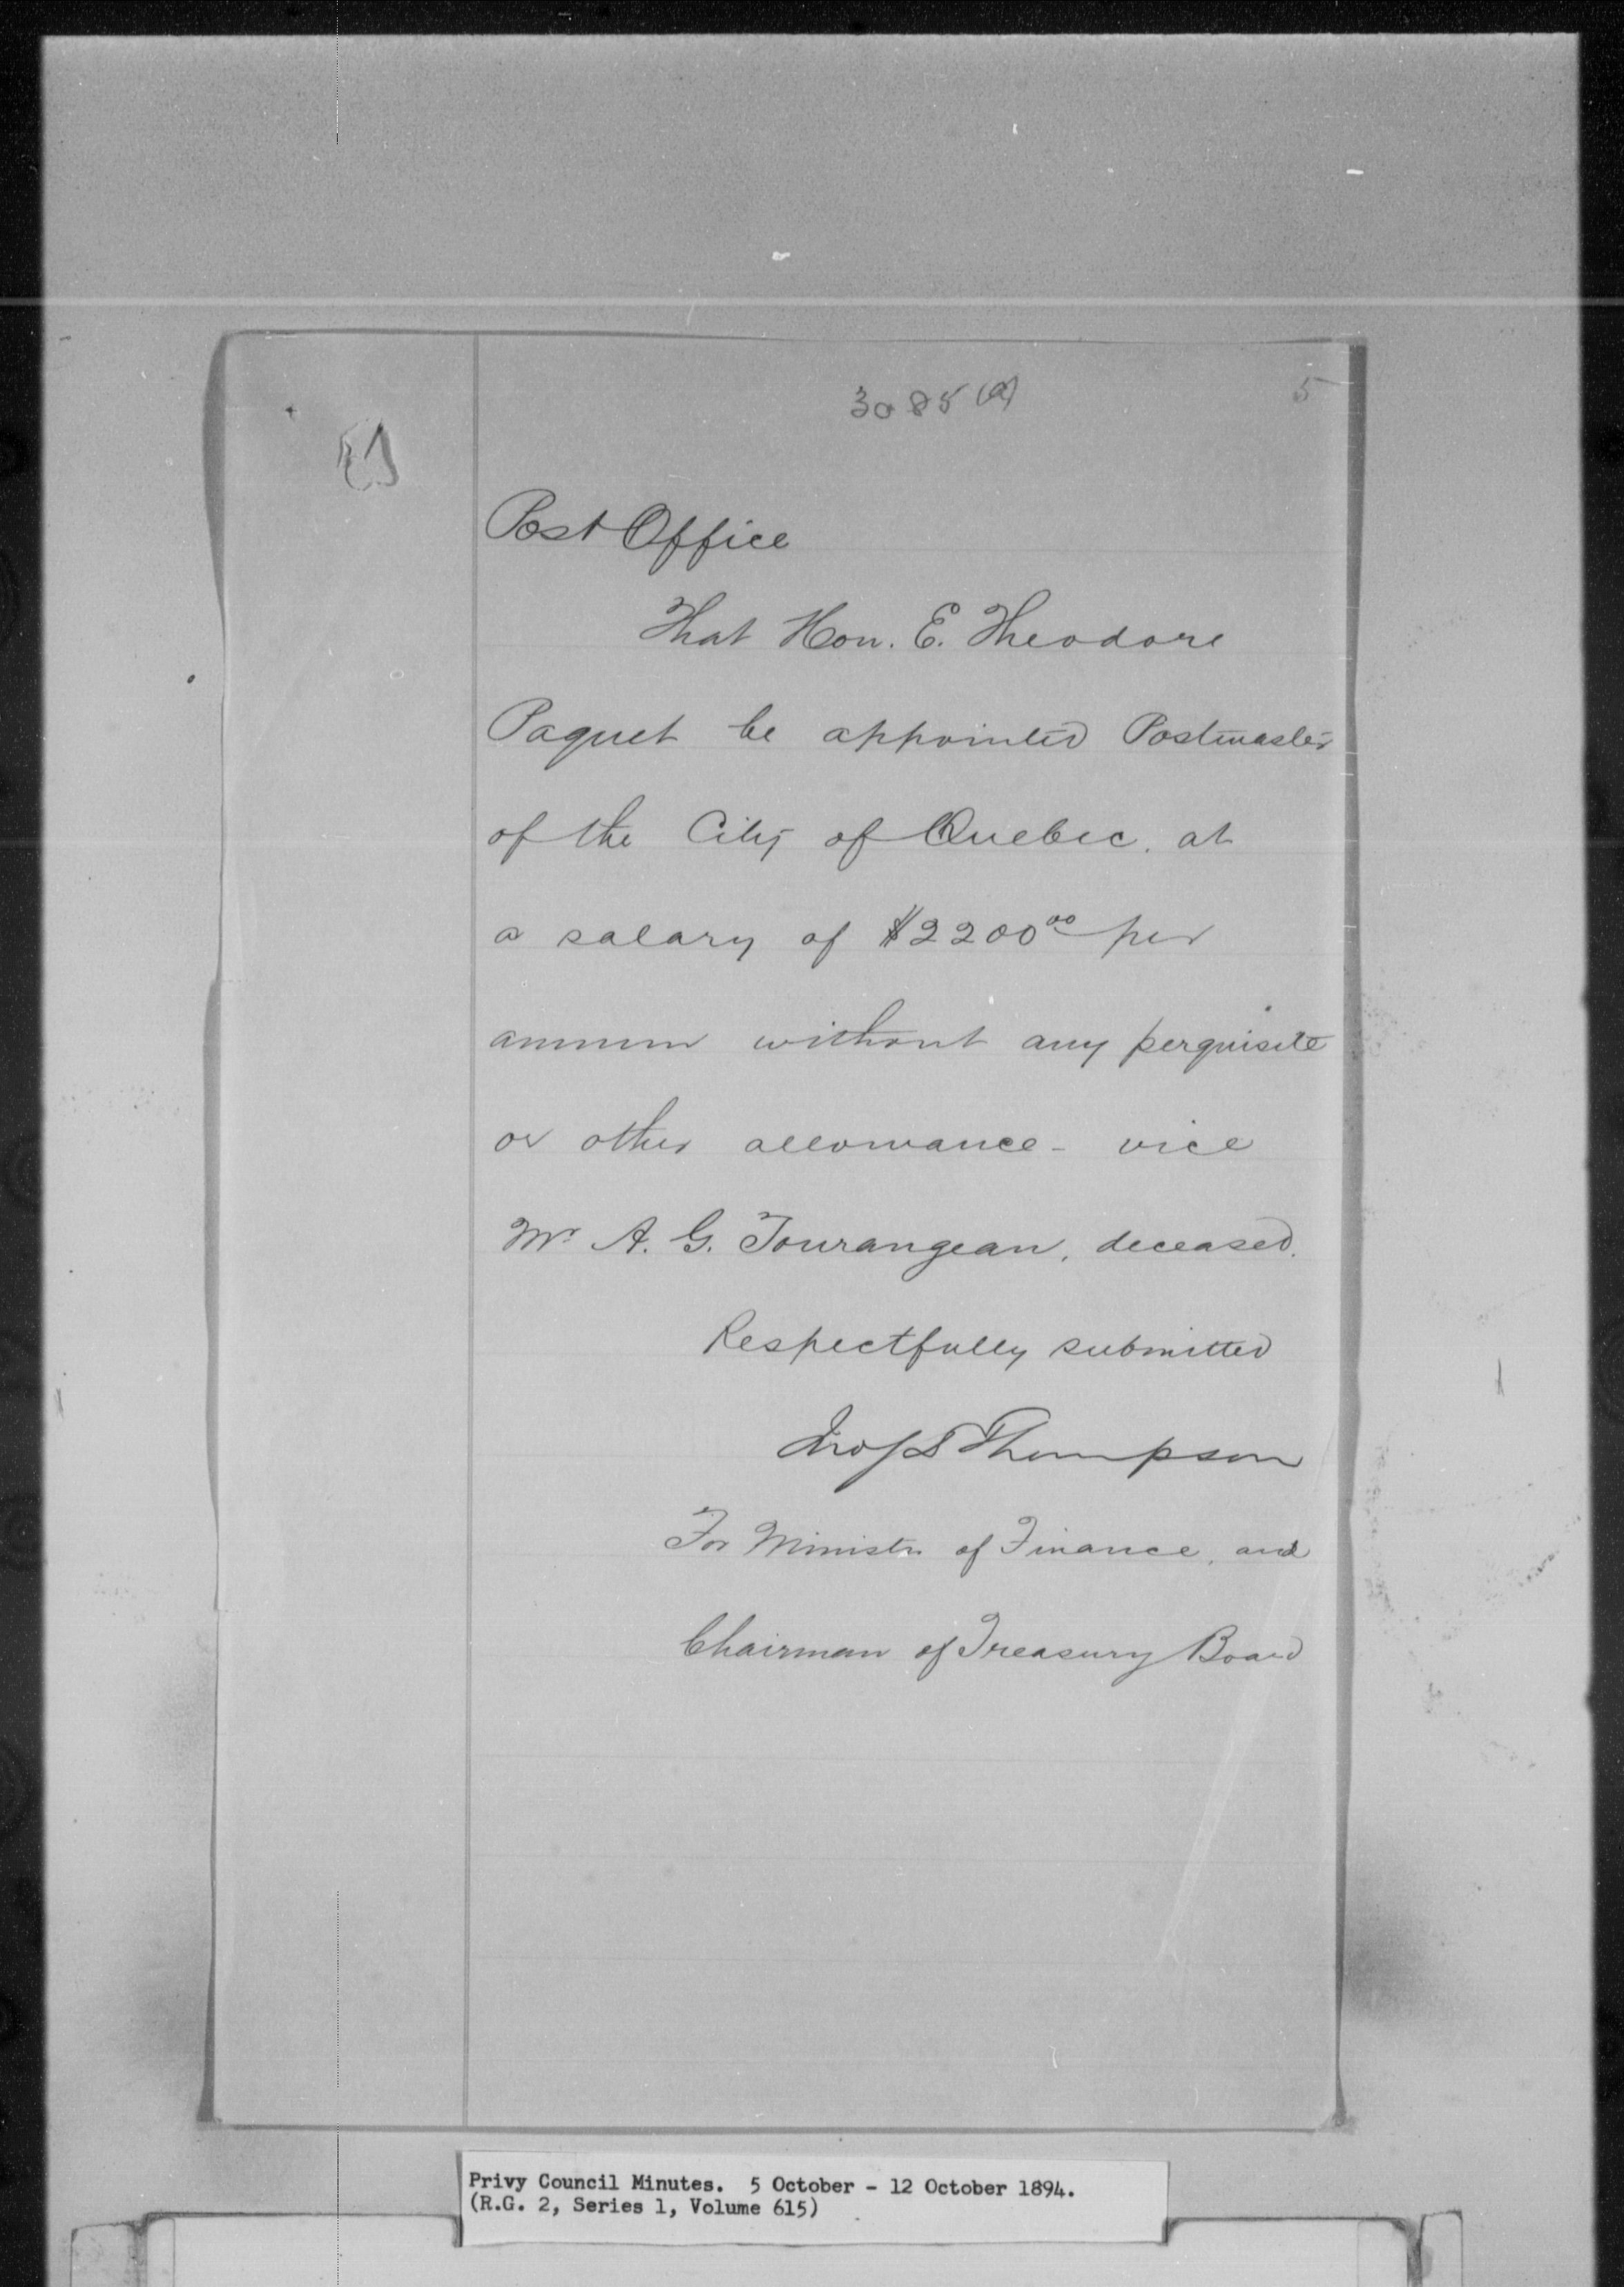 3085 (a)
5
Post Office
That Hon. E. Theodore
Paquet be appointed Postmaster
of the City of Quebec, at
a salary of $2200.00 per
annum without any perquisite
or other allowance - vice
Mr A. G. Tourangeau, deceased.
Respectfully submitted
Jno S D Thompson
For Minister of Finance, and
Chairman of Treasury Board
Privy Council Minutes. 5 October - 12 October 1894.
(R.G. 2, Series 1, Volume 615)